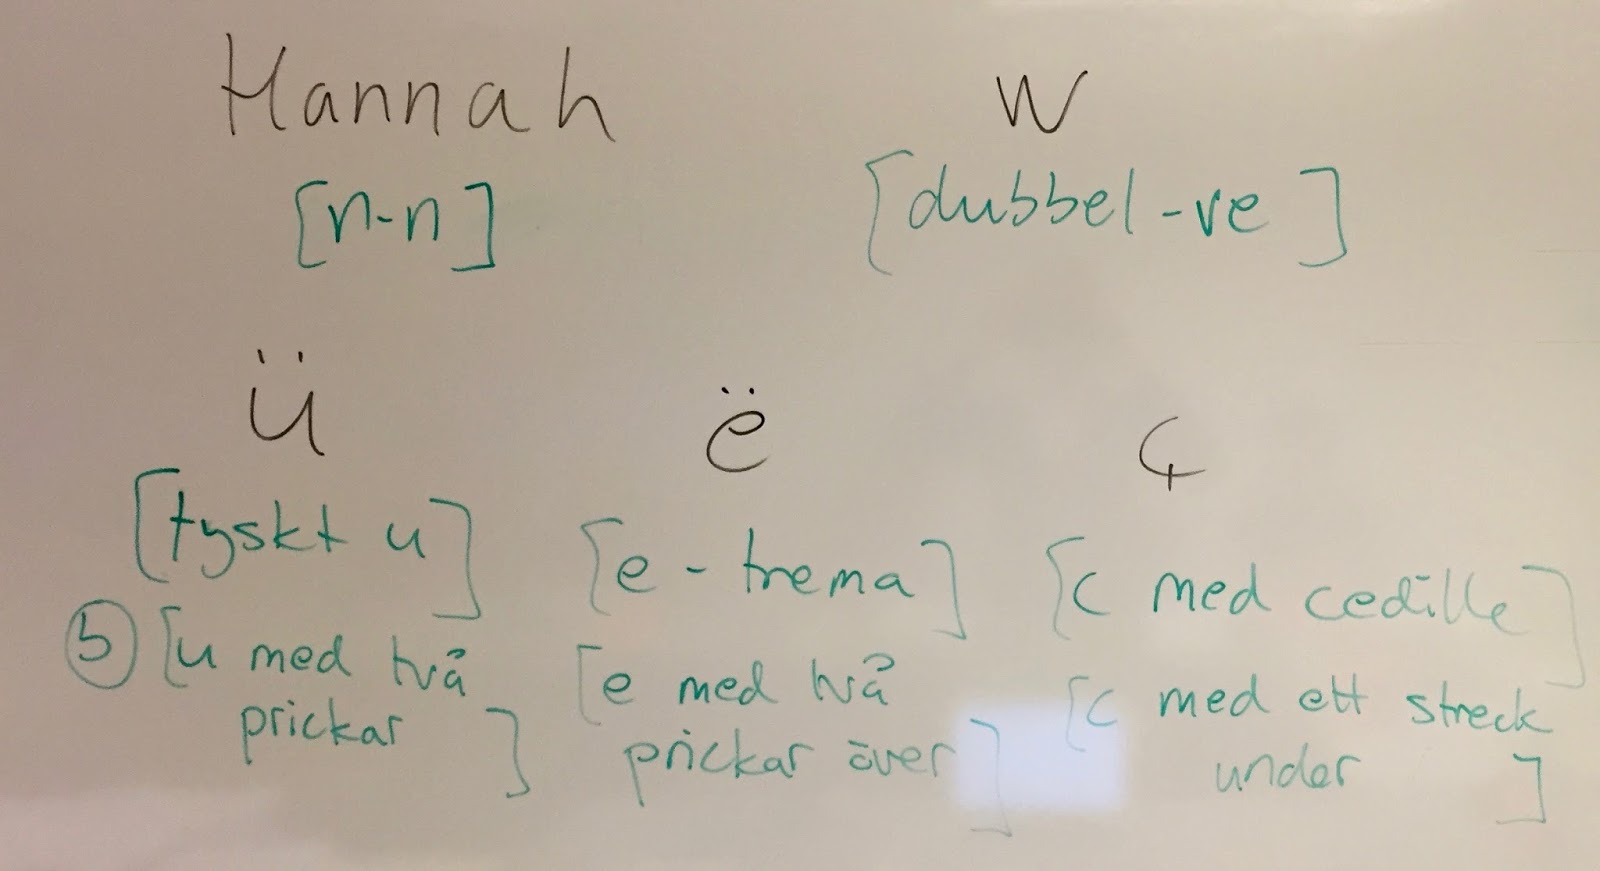 Hannah
W
[n-n]
[dubbel-ve]
ü
ë
ç
[tyskt u]
[e-trema]
[c med cedille]
5 [u med två
prickar]
[e med två
prickar över]
[c med ett streck
under]